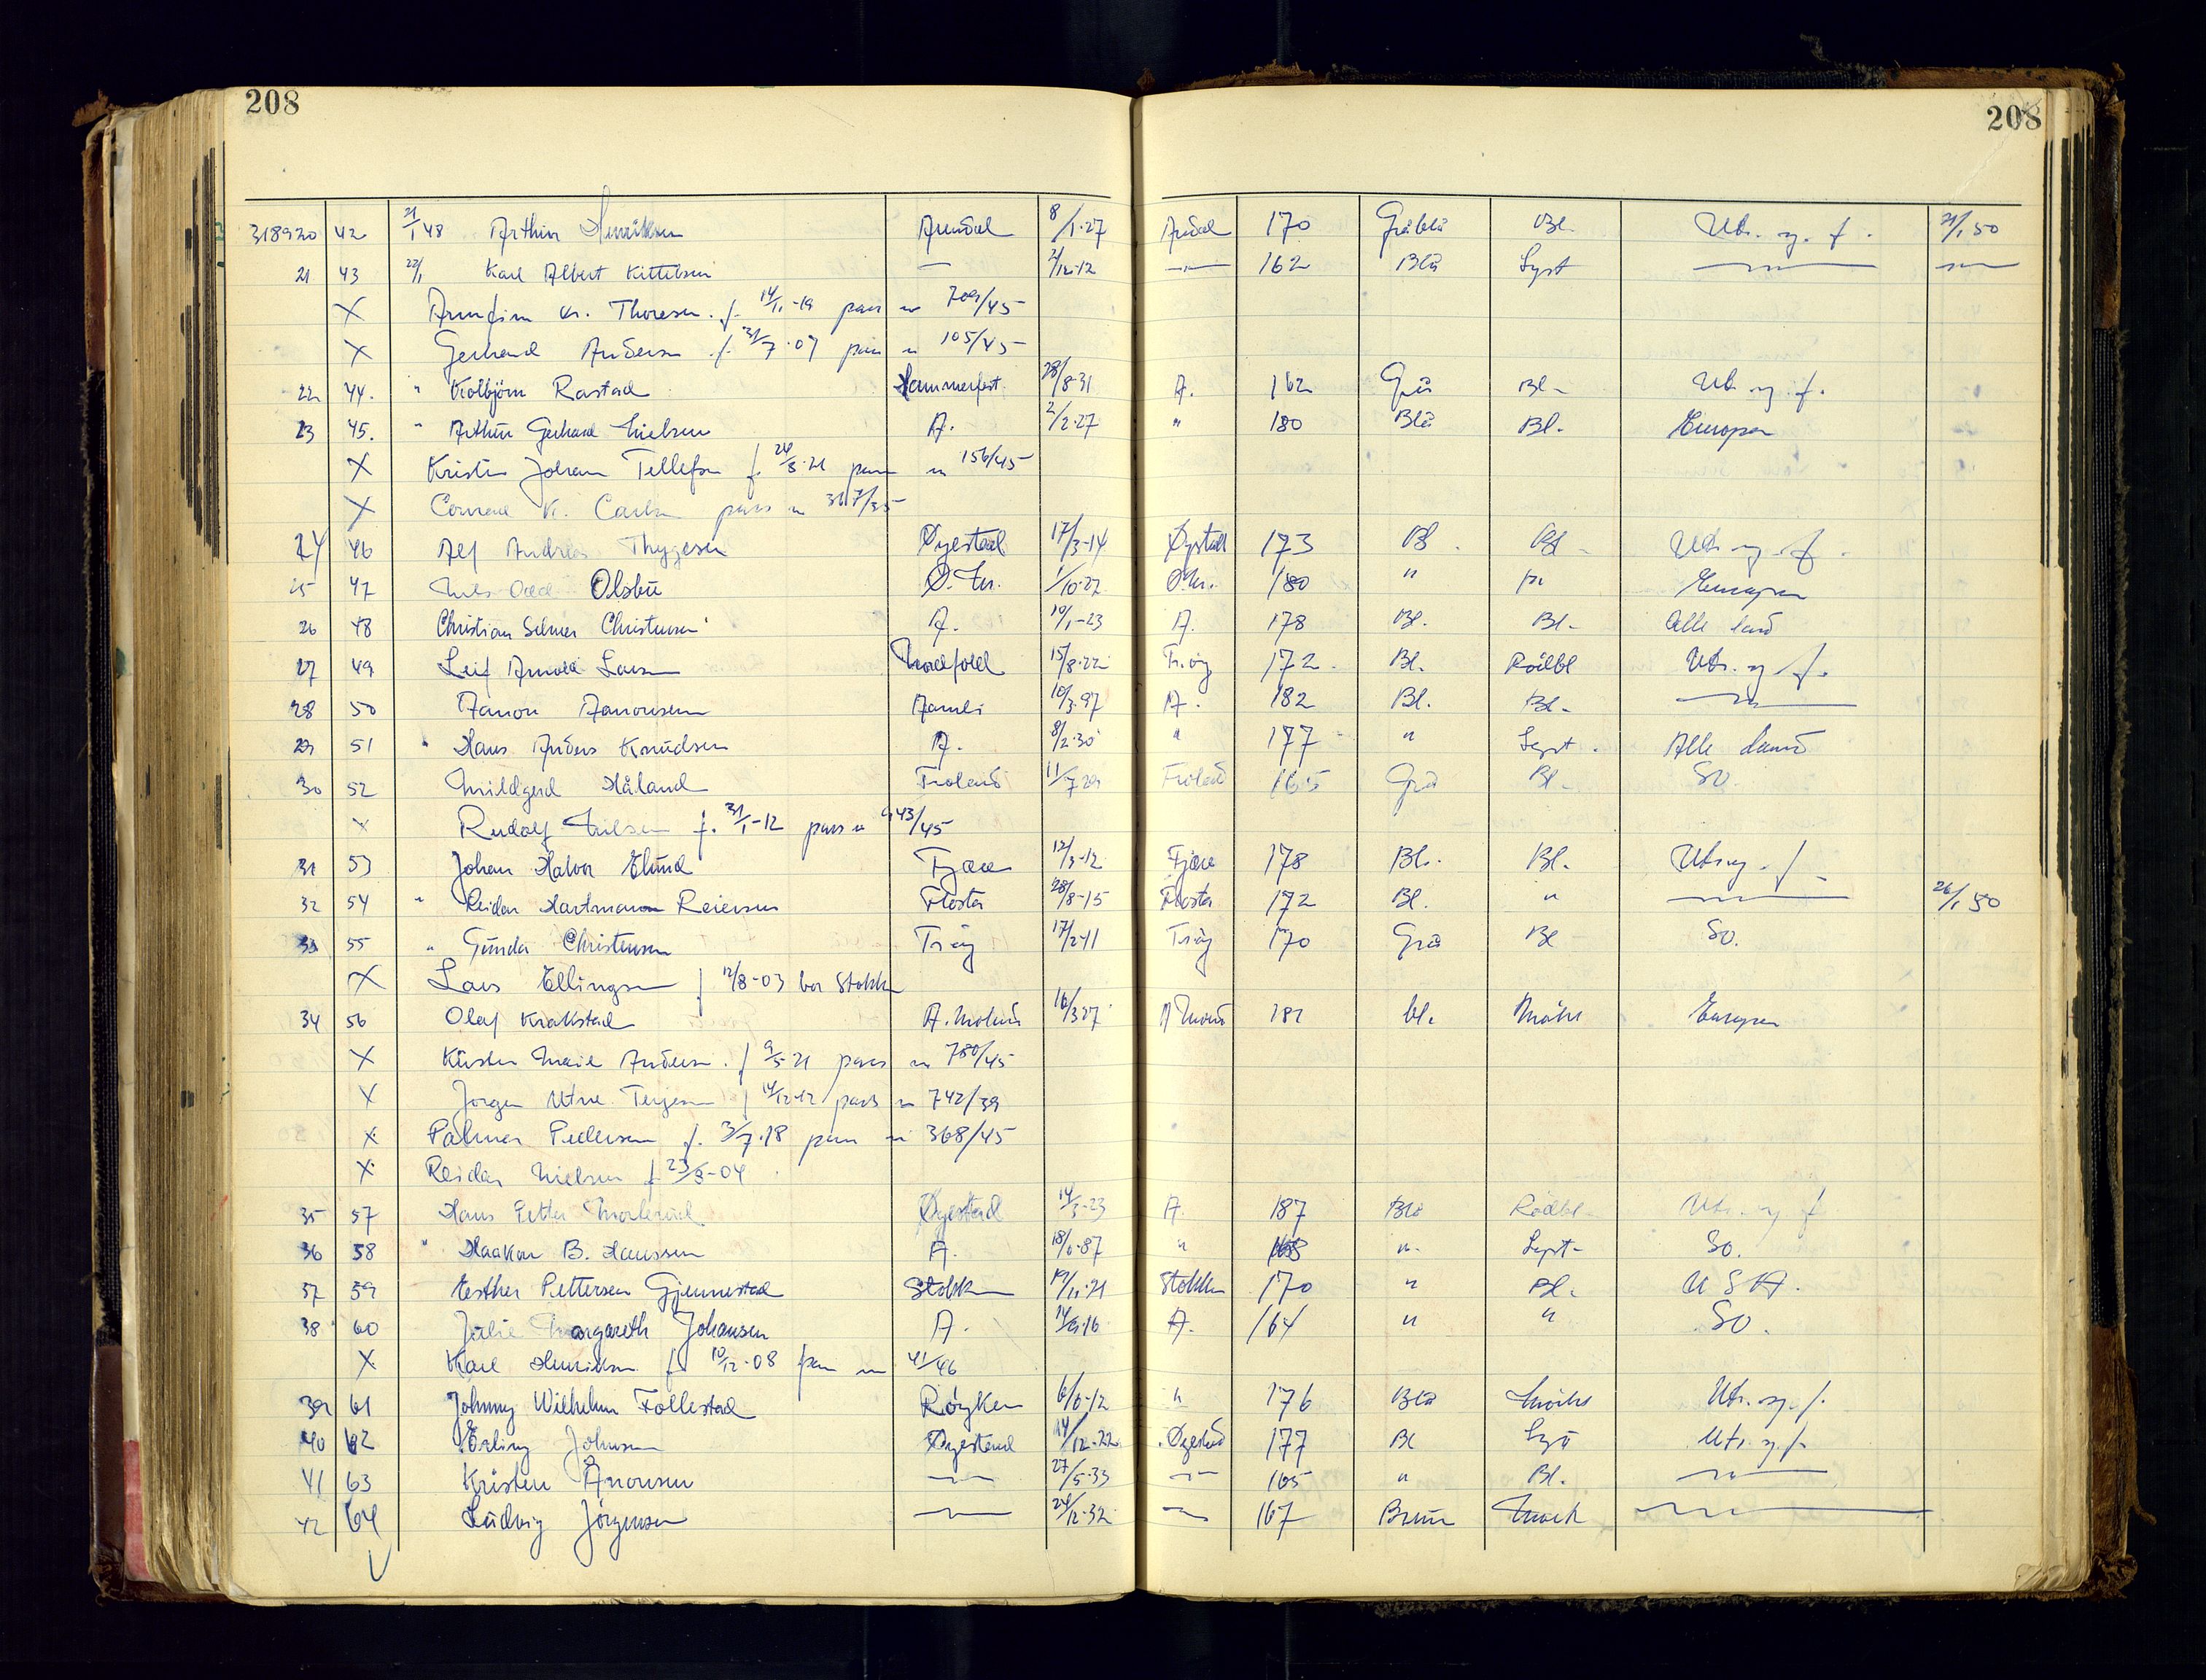 208 208
318920 42 21/1 48 Arthur Henriksen Arendal 8/1-27 Arendal 170 Gråblå Bl. Utr. og f. 21/1 50
21 43 22/1 Karl Albert Kittelsen — 2/12-12 — 162 Blå Lyst — —
X Arnfinn Kr. Thoresen f. 14/11-19 pass 709/45
X Gerhard Andersen f. 31/7-07 pass 105/45
22 44. " Kolbjörn Rastad Hammerfest 28/8-31 A. 162 Grå Bl. Utr. og f.
23 45. " Arthur Gerhard Nielsen A. 2/2-27 " 180 Blå Bl. Europa
X Johan Tellefsen f. pass 156/45
X Conrad K. Carlsen pass 367/35
24 46 Alf Andreas Thygesen Øyestad 17/3-14 Øyestad 173 Bl. Bl. Utr. og f.
25 47 Nils Odd Olsbu 180 " " Europa
26 48 Christian Selmer Christensen A. 10/1-23 A. 178 Bl. Bl. Alle land
27 49 Leif Arnold Larsen Nordfold 15/8-22 Tr.öy 172. Bl. Rödbl Utr. og f.
28 50 Aanon Aanonsen Aamli 10/3-97 A. 182 Bl. Bl. —
29 51 " Hans Anders Knudsen A. 8/2-30 " 177 " Lyst. Alle land
30 52 Mildgerd Håland Froland 11/7 29 Froland 165 Grå Bl. SO.
X Rudolf Nilsen f. 31/1-12 pass 43/45
31 53 Johan Halvor Eklund Fjære 12/3-12 Fjære 178 Bl. Bl. Utr og. f
32 54 " Reidar Hartmann Reiersen Flosta 28/8-15 Flosta 172 Bl. " — 26/1 50
33 55 " Gunda Christensen Tröy 17/2-11 Tröy 170 Grå Bl SO.
X Lars Ellingsen f 12/8-03 bor Stokken
34 56 Olaf Krakstad A. Moland 16/3 27 A Moland 181 bl. Mörk Europa
X Kirsten Marie Andersen. f 9/5-21 pass 780/45
X Jörgen Utne Terjesen f 14/12-12 pass 742/39
X Palmer Pedersen f. 3/7-18 pass 368/45
X Reidar Nielsen f 23/3-04
35 57 Hans Petter Øyestad 14/3-23 A. 187 Blå Rödbl. Utr. og f
36 58 " Haakon B. Hanssen A. 18/6-87 " 168 " Lyst- SO.
37 59 Esther Pettersen Gjennestad Stokken 19/11-21 Stokken 170 " Bl. U S A.
38 60 Julie Margareth Johansen A. A. 164 " " SO.
X Karl Henriksen f. 10/12-08 pass 41/46
39 61 Johnny Wilhelm Follestad Röyken 6/6-12 " 176 Blå Mörk Utr. og f.
40 62 Erling Johnsen Øyestad 14/12-22 Øyestad 177 Bl Lys Utr. og f.
41 63 Kristen Aanonsen — 27/5-33 — 165 " Bl. —
42 64 Ludvig Jörgensen — 24/12-32 — 167 Brun Mörk —